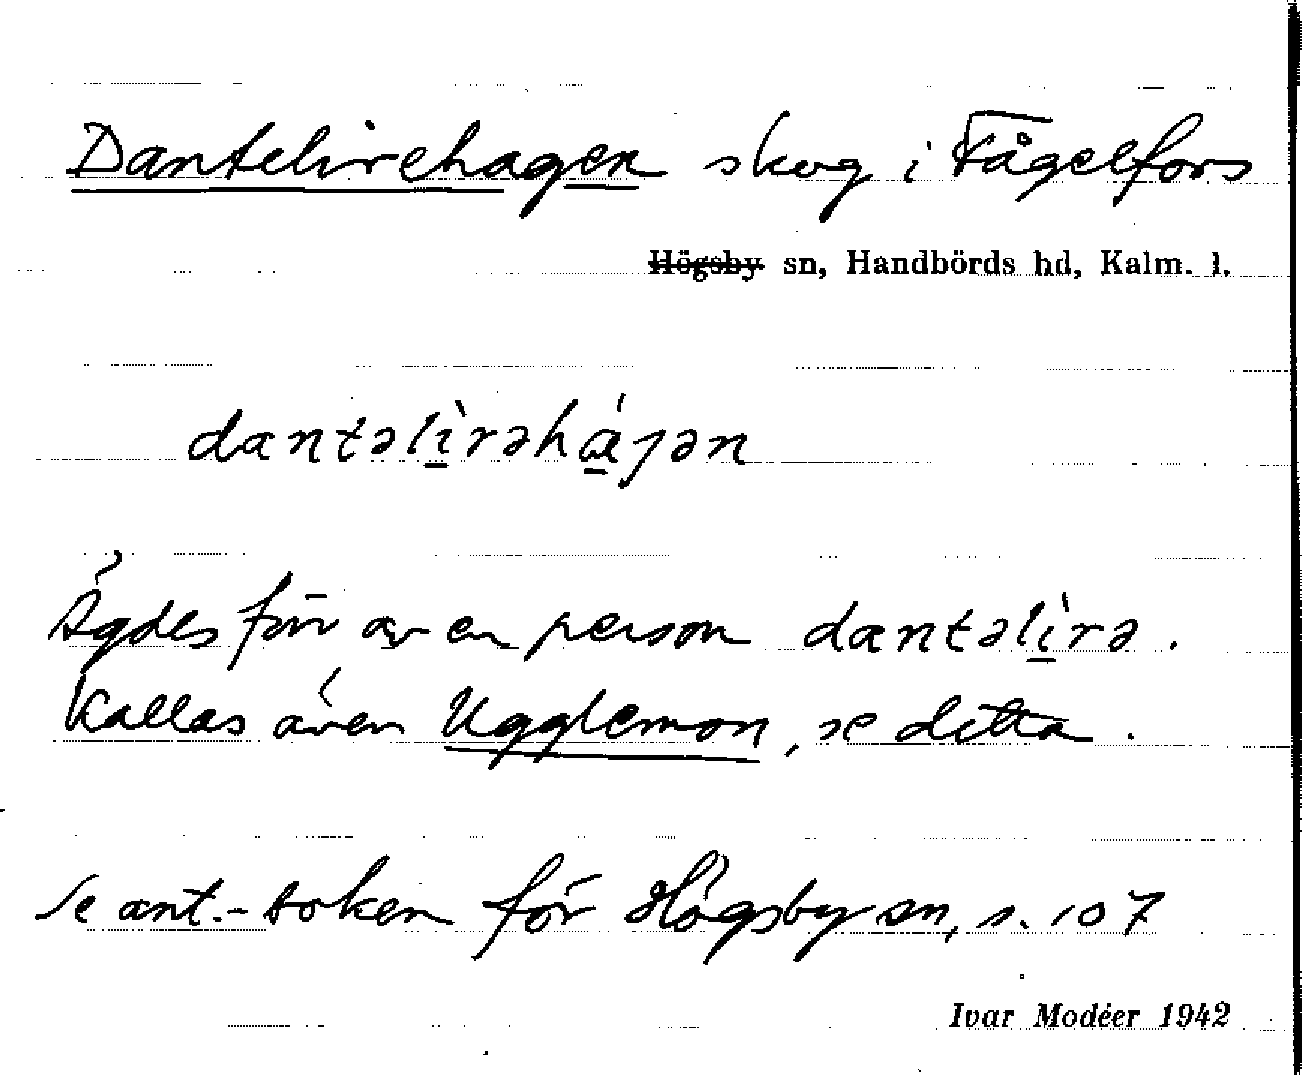 Dantelirehagen skog i Fågelfors
Högsby sn, Handbörds hd, Kalm. l.
dantəlìrəhájən
Ägdes förr av en person dantəlìrə.
Kallas även Ugglemon, se detta.
Se ant.-boken för Högsby sn, s. 107
Ivar Modéer 1942